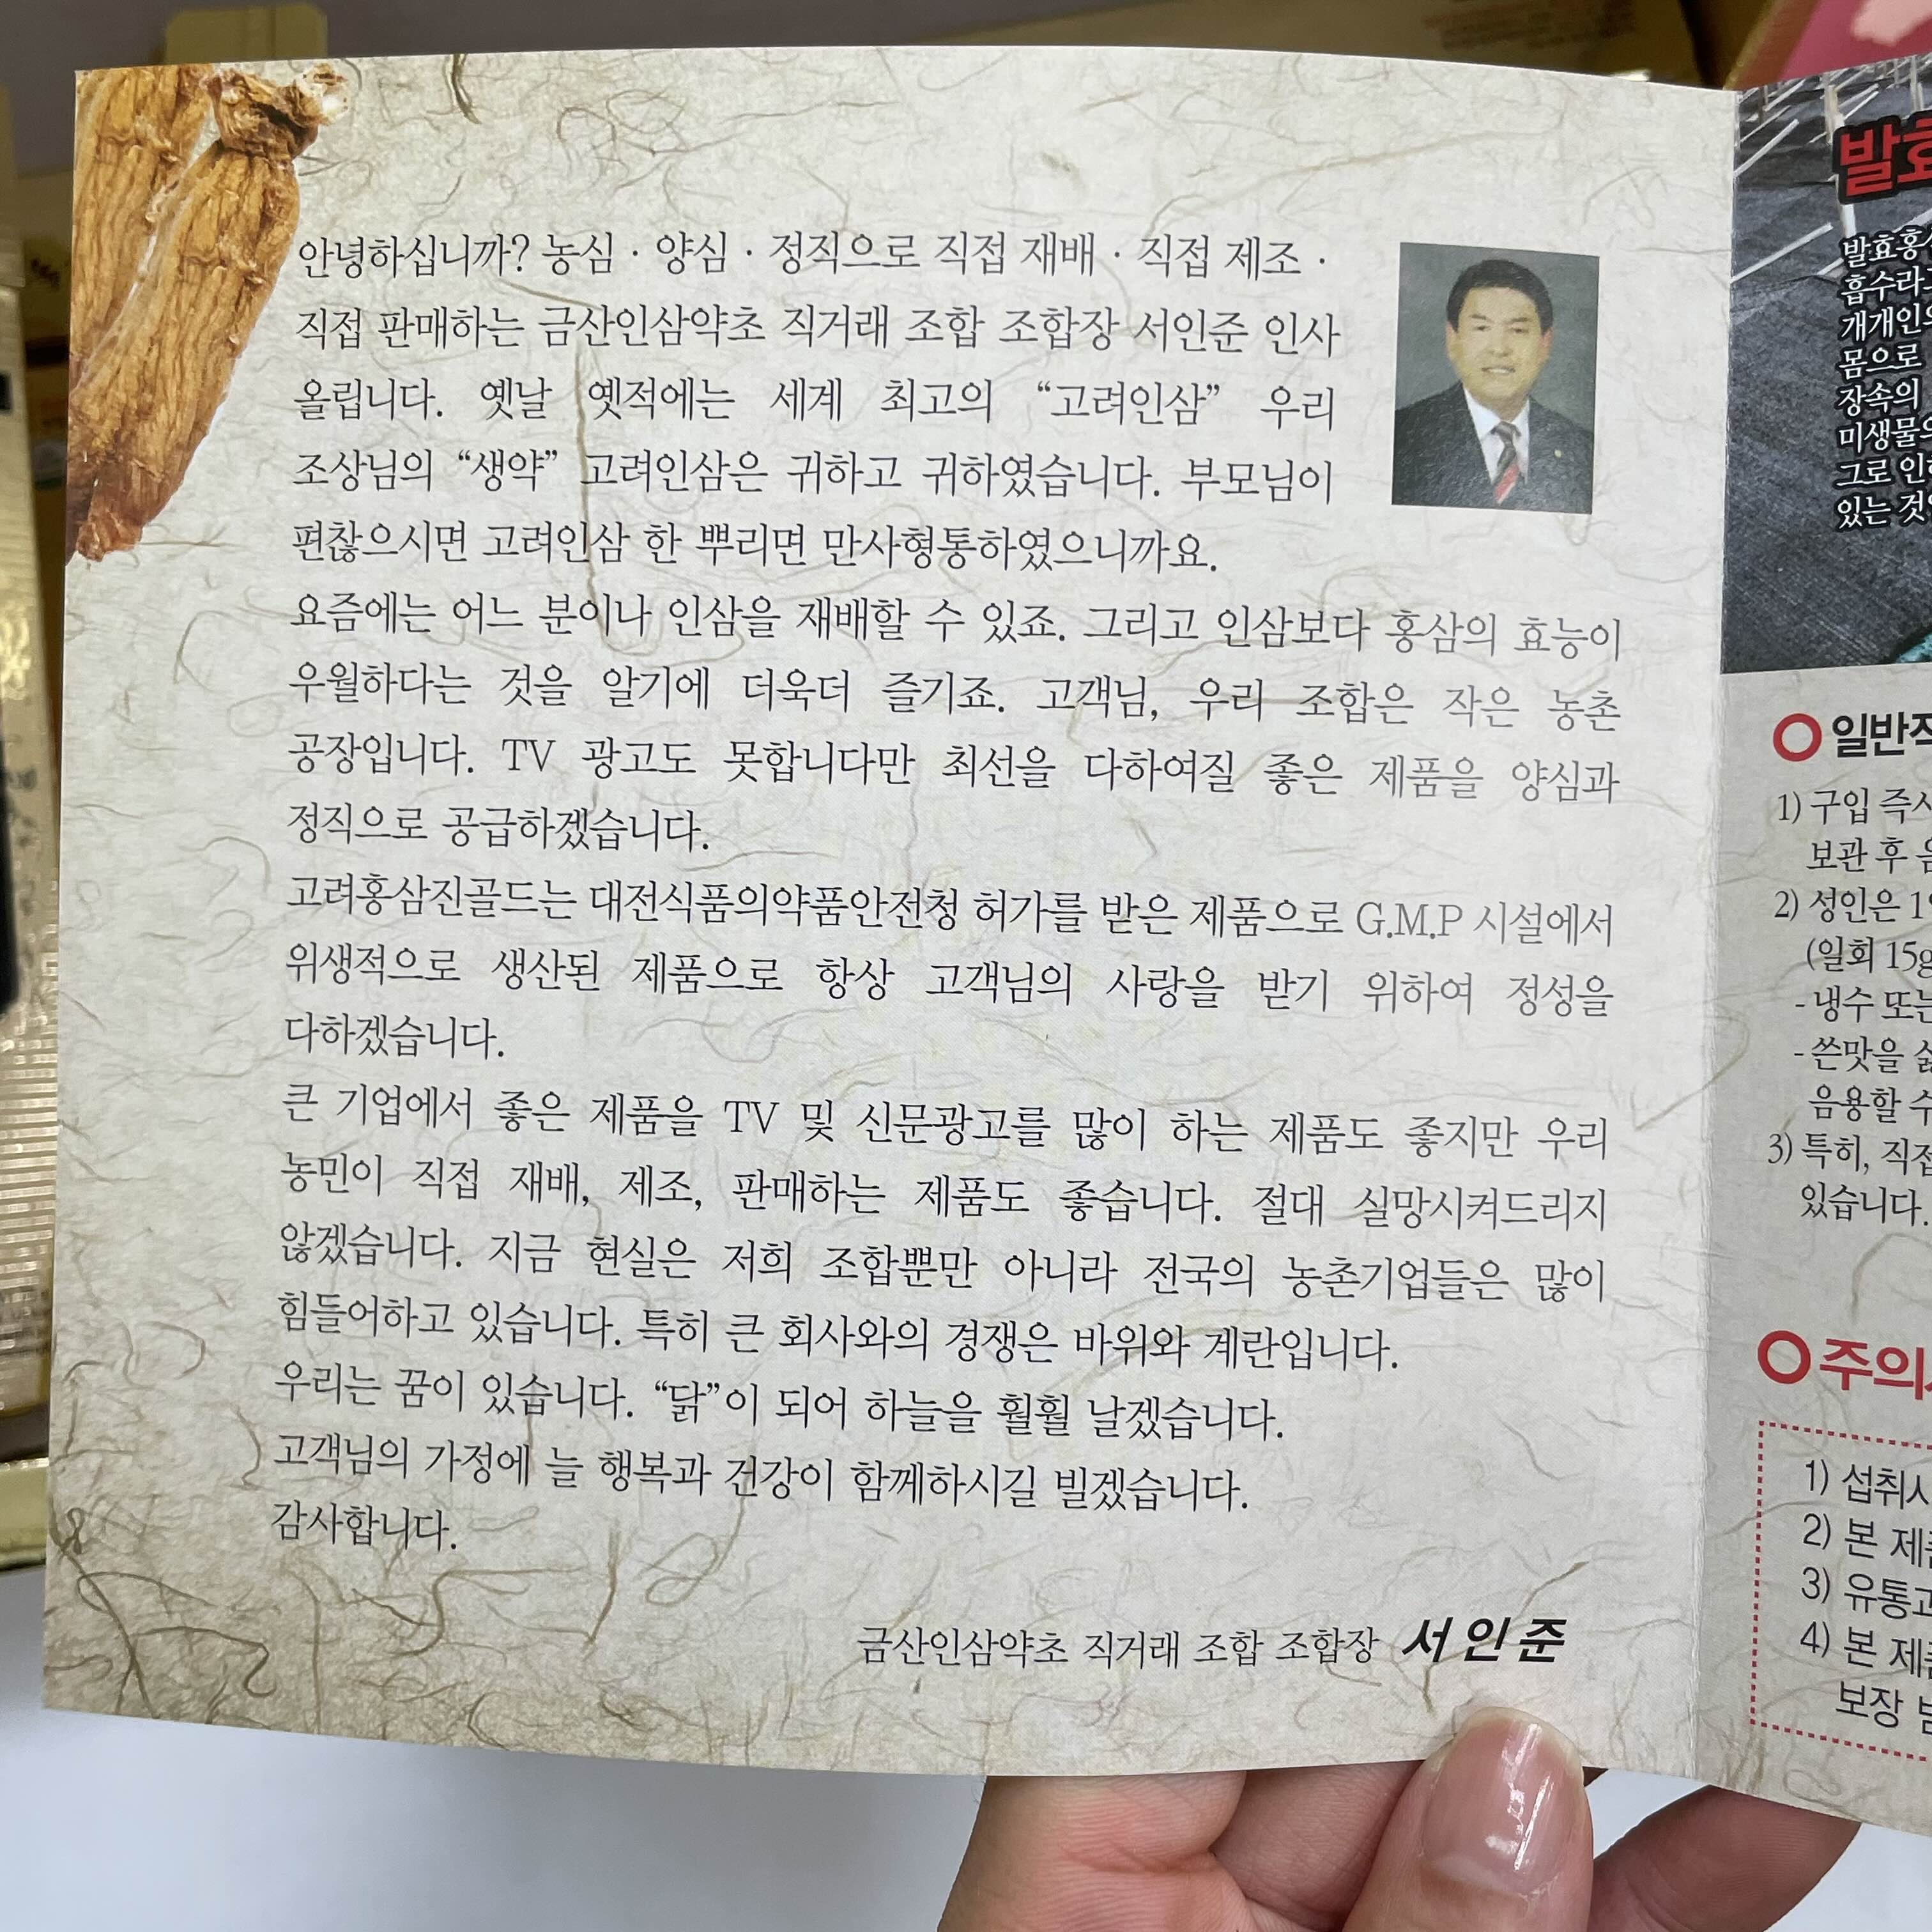 안녕하십니까? 농심 · 양심 · 정직으로 직접 재배 · 직접 제조 ·
직접 판매하는 금산인삼약초 직거래 조합 조합장 서인준 인사
올립니다. 옛날 옛적에는 세계 최고의 “고려인삼” 우리
조상님의 “생약” 고려인삼은 귀하고 귀하였습니다. 부모님이
편찮으시면 고려인삼 한 뿌리면 만사형통하였으니까요.
요즘에는 어느 분이나 인삼을 재배할 수 있죠. 그리고 인삼보다 홍삼의 효능이
우월하다는 것을 알기에 더욱더 즐기죠. 고객님, 우리 조합은 작은 농촌
공장입니다. TV 광고도 못합니다만 최선을 다하여질 좋은 제품을 양심과
정직으로 공급하겠습니다.
고려홍삼진골드는 대전식품의약품안전청 허가를 받은 제품으로 G.M.P 시설에서
위생적으로 생산된 제품으로 항상 고객님의 사랑을 받기 위하여 정성을
다하겠습니다.
큰 기업에서 좋은 제품을 TV 및 신문광고를 많이 하는 제품도 좋지만 우리
농민이 직접 재배, 제조, 판매하는 제품도 좋습니다. 절대 실망시켜드리지
않겠습니다. 지금 현실은 저희 조합뿐만 아니라 전국의 농촌기업들은 많이
힘들어하고 있습니다. 특히 큰 회사와의 경쟁은 바위와 계란입니다.
우리는 꿈이 있습니다. “닭”이 되어 하늘을 훨훨 날겠습니다.
고객님의 가정에 늘 행복과 건강이 함께하시길 빌겠습니다.
감사합니다.
금산인삼약초 직거래 조합 조합장 서인준
개개인의
몸으로
장속의
그로 인해
있는 것
1) 구입 즉시
보관 후
2) 성인은
(일회 15g
- 냉수 또는
- 쓴맛을
음용할 수
3) 특히, 직접
있습니다.
1) 섭취시
2) 본 제품
3)
4) 본 제품
보장